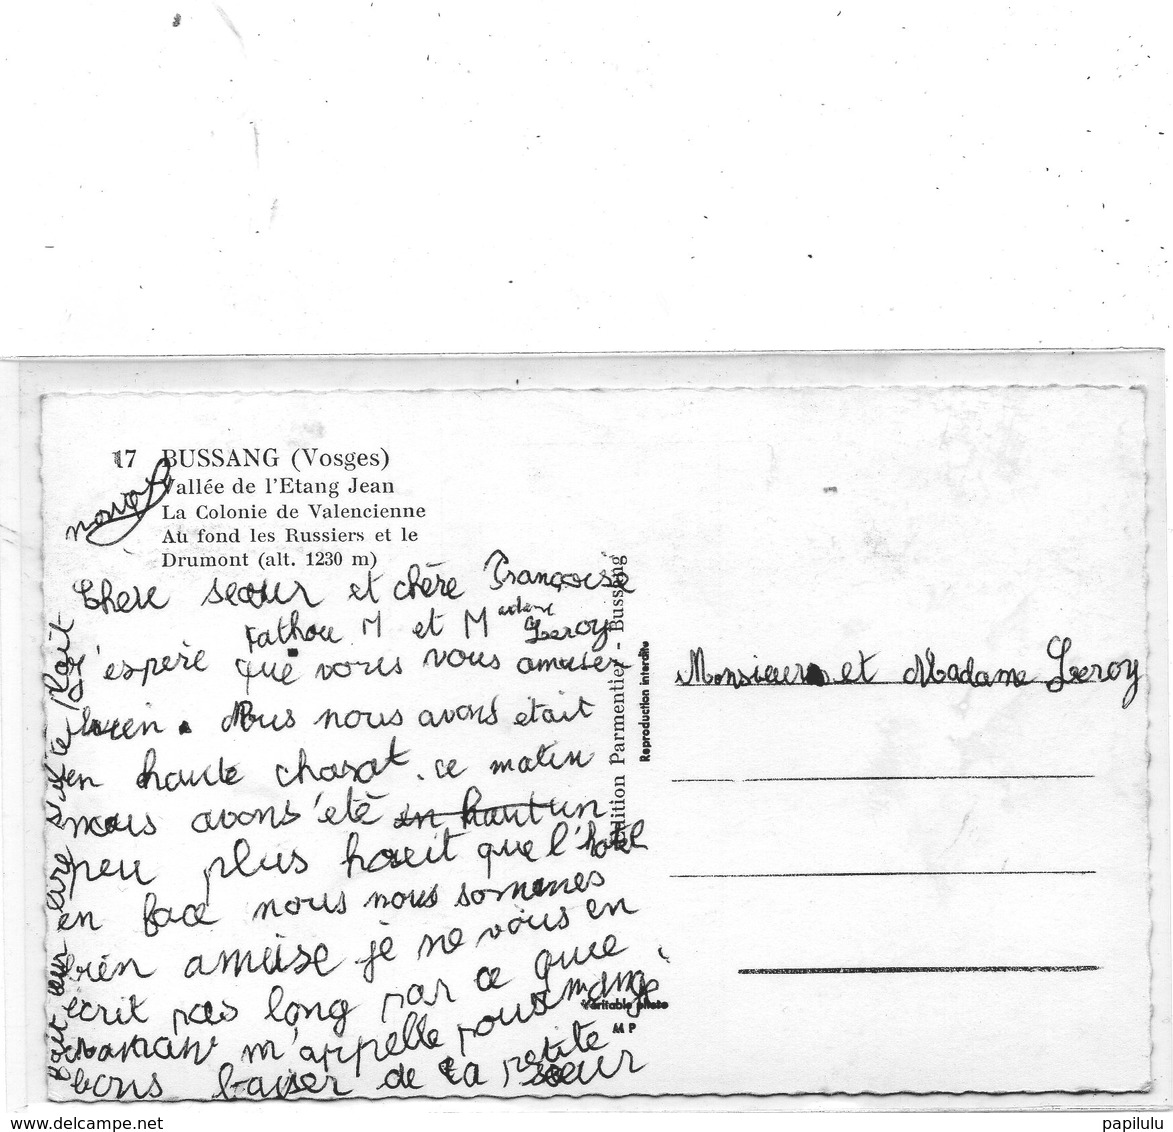 17 BUSSANG (Vosges)
Vallée de l'Etang Jean
La Colonie de Valencienne
Au fond les Russiers et le
Drumont (alt. 1230 m)
Chere seœur et chère Françoise
M et M Leroy
j'espere que vous vous amusez
bien. Nous nous avons était
en haute chasat. ce matin
nous avons été en haut un
peu plus haut que l'hotel
en face nous nous sommes
bien amuse je ne vous en
écrit pas long par ce que
maman m'appelle pour mange
bons baiser de ta petite
sœur
lire s'il te plait
Monsieur et Madame Leroy
Edition Parmentier - Bussang
Reproduction interdite
Véritable photo
M P
www.delcampe.net
papilulu